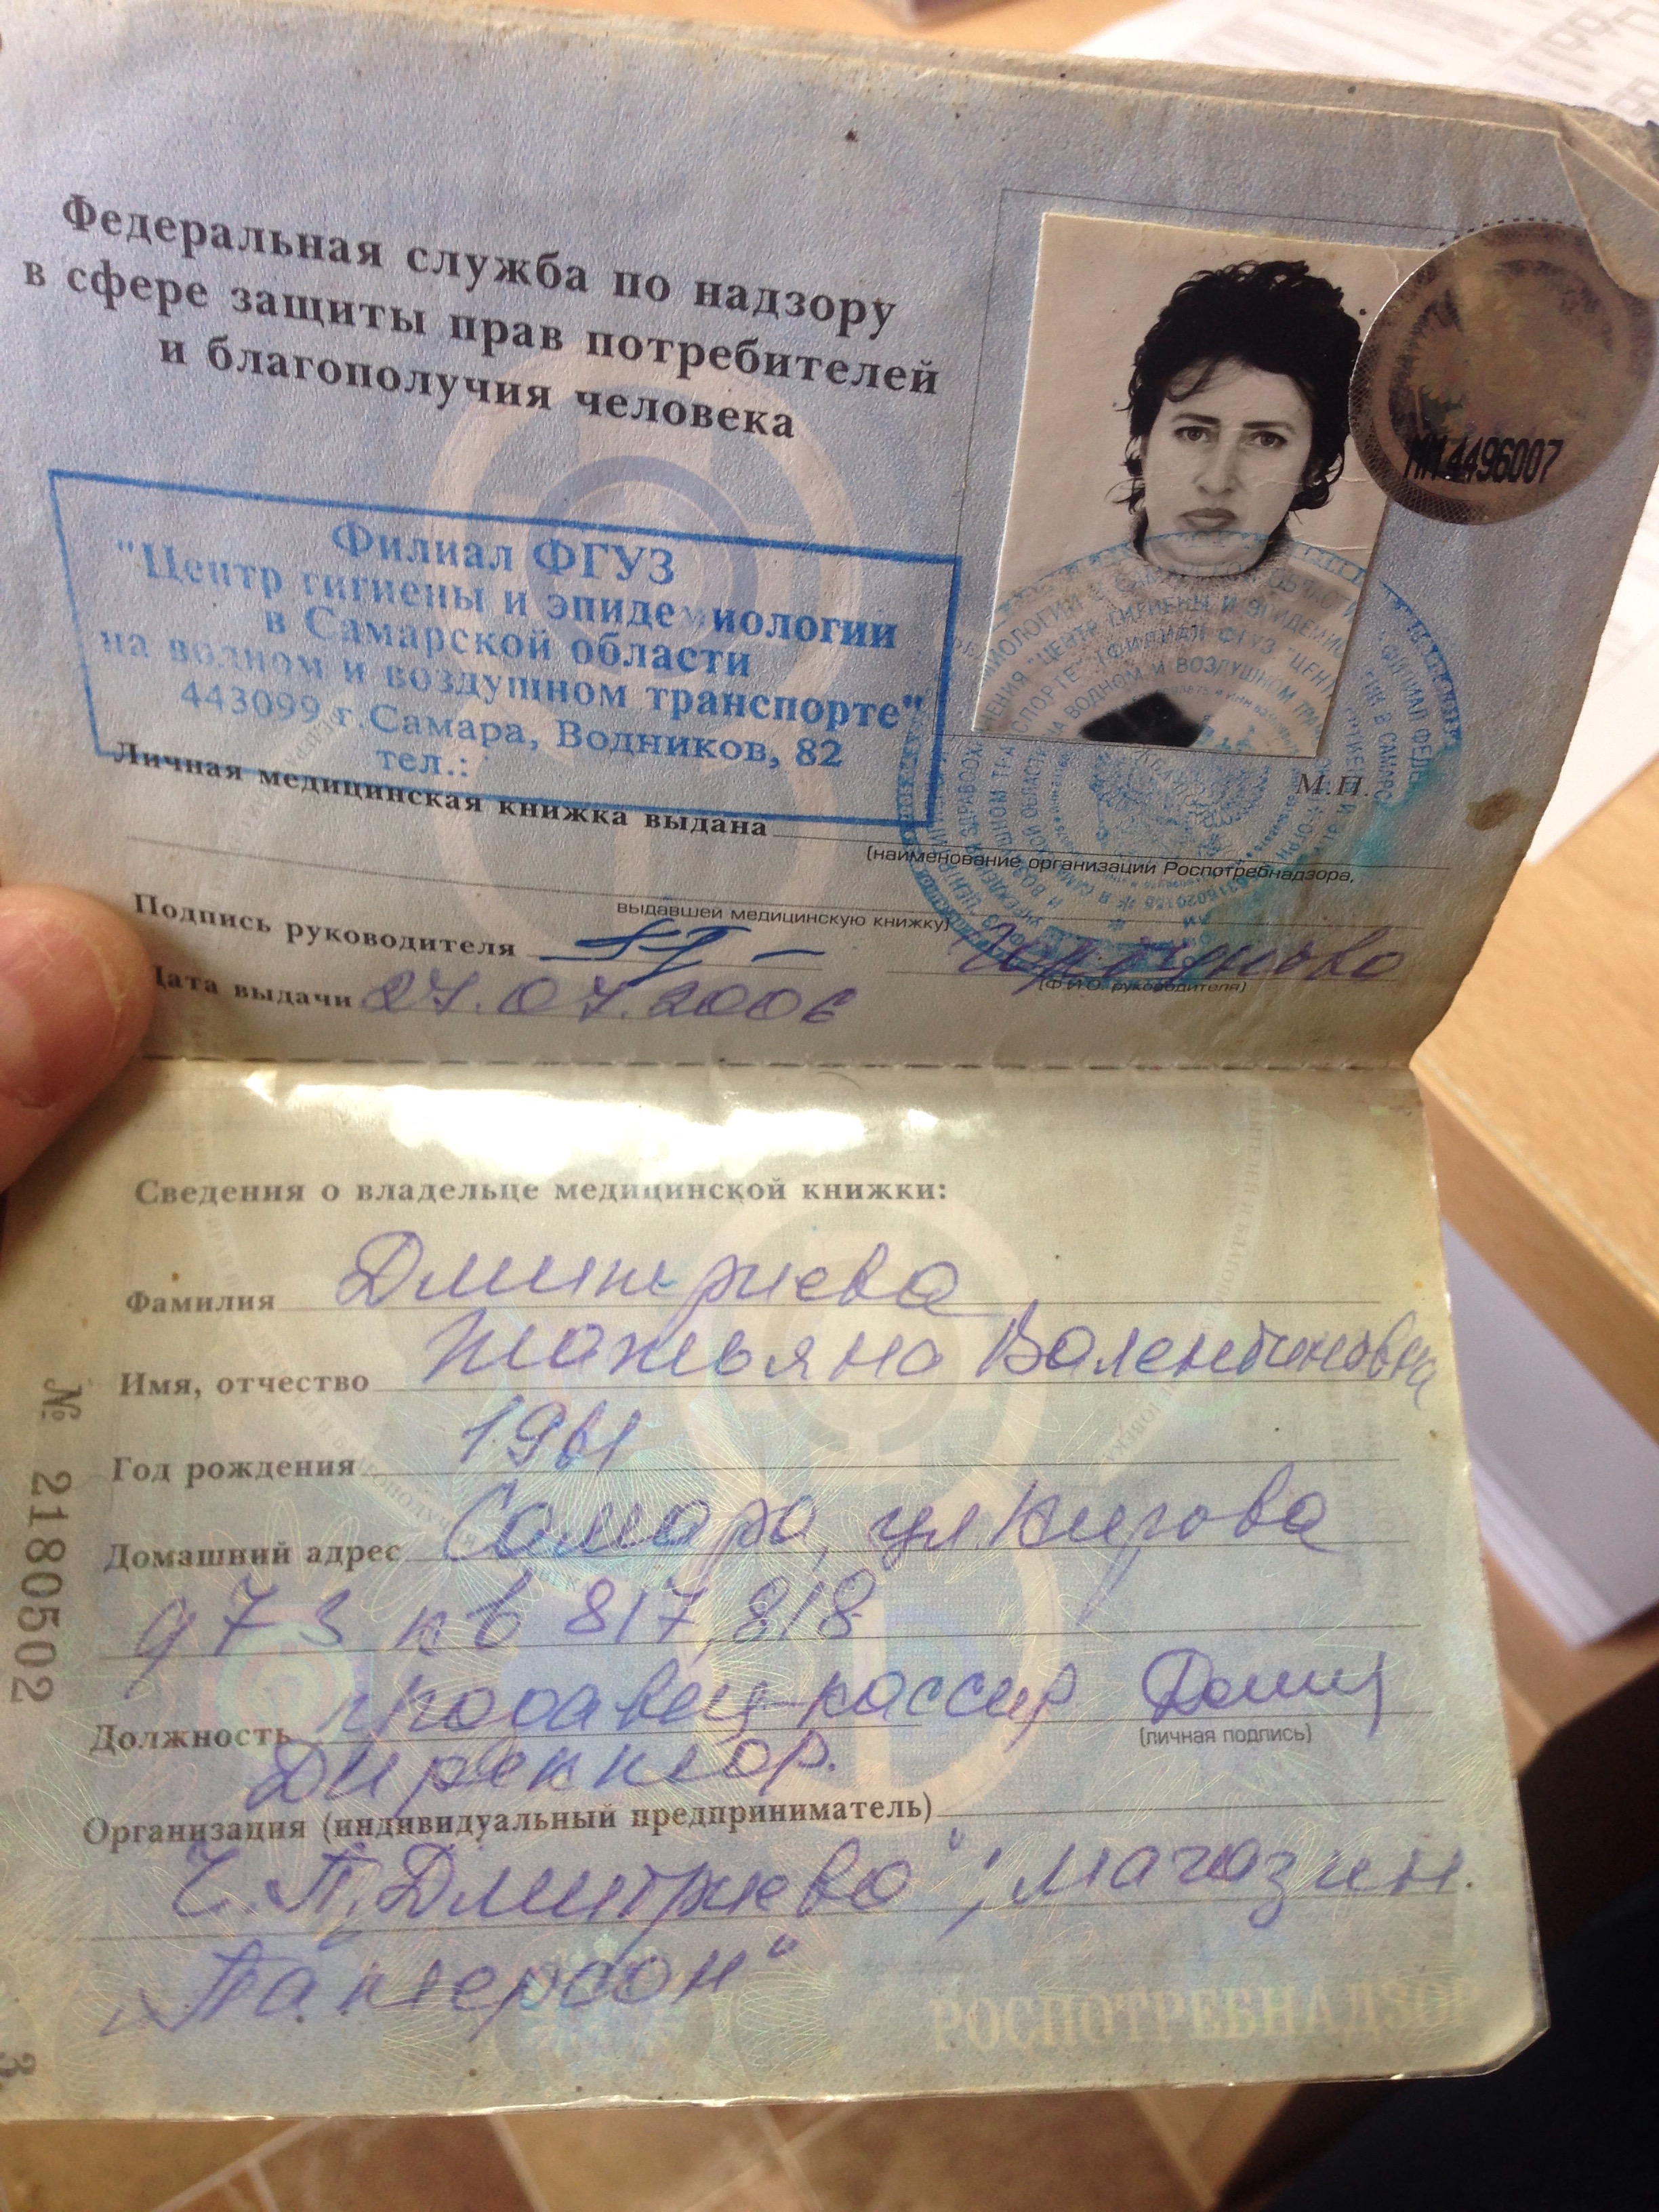 Федеральная служба по надзору
в сфере защиты прав потребителей
и благополучия человека
ММ 4496007
Филиал ФГУЗ
"Центр гигиены и эпидемиологии
в Самарской области
на водном и воздушном транспорте"
443099 г.Самара, Водников, 82
тел.:
М.П.
Личная медицинская книжка выдана
(наименование организации Роспотребнадзора,
выдавшей медицинскую книжку)
Подпись руководителя
(Ф.И.О. руководителя)
Дата выдачи 27.07.2006
Сведения о владельце медицинской книжки:
Фамилия Дмитриева
Имя, отчество Татьяна Валентиновна
Год рождения 1961
Домашний адрес Самара, ул Кирова
д 73 кв 817, 818
Должность продавец-кассир
(личная подпись)
Директор.
Организация (индивидуальный предприниматель)
Ч.П. Дмитриева"; магазин.
"Патерсон"
№ 2180502
РОСПОТРЕБНАДЗОР
3